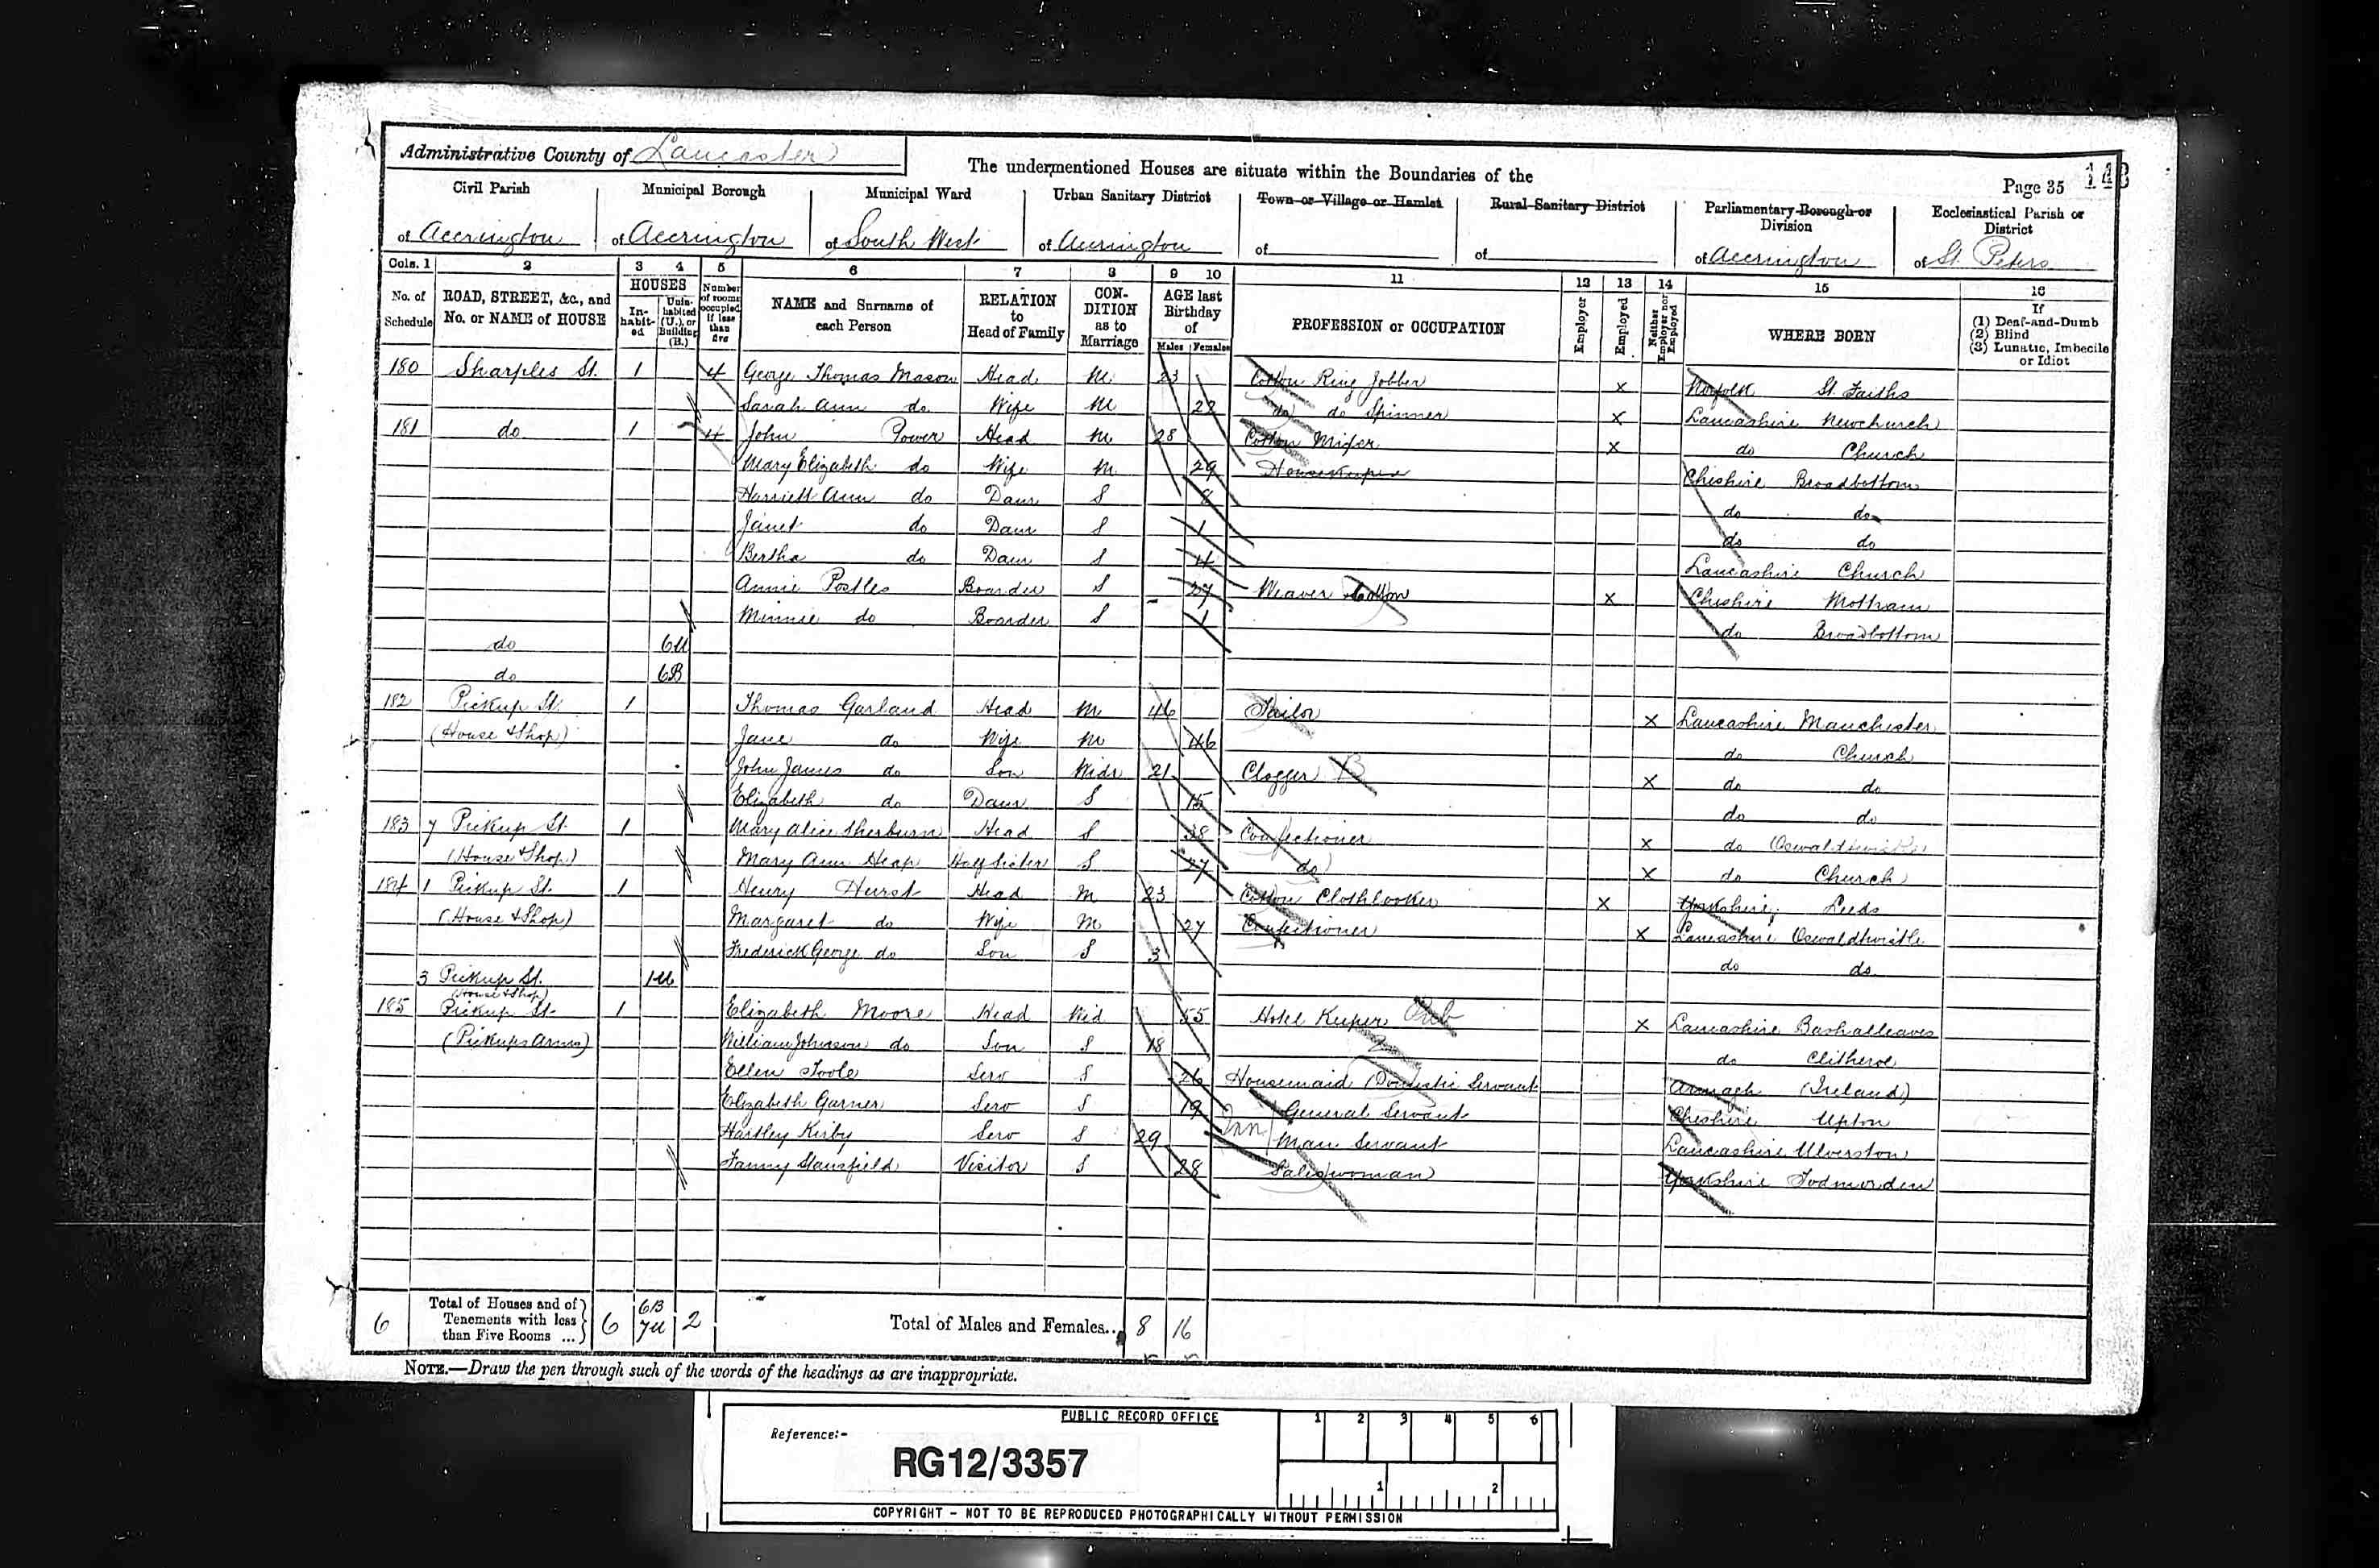 Administrative County of Lancaster
The undermentioned Houses are situate within the Boundaries of the
Page 35 143
Civil Parish Municipal Borough Municipal Ward Urban Sanitary District Town or Village or Hamlet Rural Sanitary District Parliamentary Borough or Division Ecclesiastical Parish or District
of Accrington of Accrington of South West of Accrington of of of Accrington of St. Peters
Cols. 1 2 3 4 5 6 7 8 9 10 11 12 13 14 15 16
No. of Schedule ROAD, STREET, &c., and No. or NAME of HOUSE HOUSES In-habit-ed Unin-habited (U.), or Building (B.) Number of rooms occupied if less than five NAME and Surname of each Person RELATION to Head of Family CON-DITION as to Marriage AGE last Birthday of Males Females PROFESSION or OCCUPATION Employer Employed Neither Employer nor Employed WHERE BORN If (1) Deaf-and-Dumb (2) Blind (3) Lunatic, Imbecile or Idiot
180 Sharples St. 1 4 George Thomas Mason Head M 23 Cotton Ring Jobber x Norfolk St. Faiths
Sarah Ann do Wife M 22 do do Spinner x Lancashire Newchurch
181 do 1 4 John Power Head M 28 Cotton Mixer x do Church
Mary Elizabeth do Wife M 29 Housekeeper Cheshire Broadbottom
Harriett Ann do Daur S 8 do do
Janet do Daur S 1 do do
Bertha do Daur S 4 Lancashire Church
Annie Postles Boarder S 27 Weaver Cotton x Cheshire Mottram
Minnie do Boarder S 1 do Broadbottom
do 6U
do 6B
182 Pickup St. 1 Thomas Garland Head M 46 Tailor x Lancashire Manchester
(House & Shop) Jane do Wife M 46 do Church
John James do Son Widr 21 Clogger x do do
Elizabeth do Daur S 15 do do
183 7 Pickup St. 1 Mary Alice Sherburn Head S 38 Confectioner x do
(House & Shop) Mary Ann Heap Half Sister S 27 do x do Church
184 1 Pickup St. 1 Henry Hurst Head M 23 Cotton Clothlooker x Yorkshire, Leeds
(House & Shop) Margaret do Wife M 27 Confectioner x Lancashire Oswaldtwistle
Frederick George do Son S 3 do do
3 Pickup St. 1U
(House & Shop)
185 Pickup St. 1 Elizabeth Moore Head Wid 55 Hotel Keeper Pub x Lancashire Bashalleaves
(Pickups Arms) William Johnson do Son S 18 do Clitheroe
Ellen Toole Serv S 26 Housemaid (Domestic Servant Armagh (Ireland)
Elizabeth Garner Serv S 19 General Servant Cheshire Upton
Hartley Kirby Serv S 29 Inn Man Servant Lancashire Ulverston
Fanny Stansfield Visitor S 28 Saleswoman Yorkshire Todmorden
6 Total of Houses and of Tenements with less than Five Rooms ... 6 6B 7U 2 Total of Males and Females... 8 16
NOTE.—Draw the pen through such of the words of the headings as are inappropriate.
PUBLIC RECORD OFFICE
1 2 3 4 5 6
Reference:-
RG12/3357
1 2
COPYRIGHT - NOT TO BE REPRODUCED PHOTOGRAPHICALLY WITHOUT PERMISSION